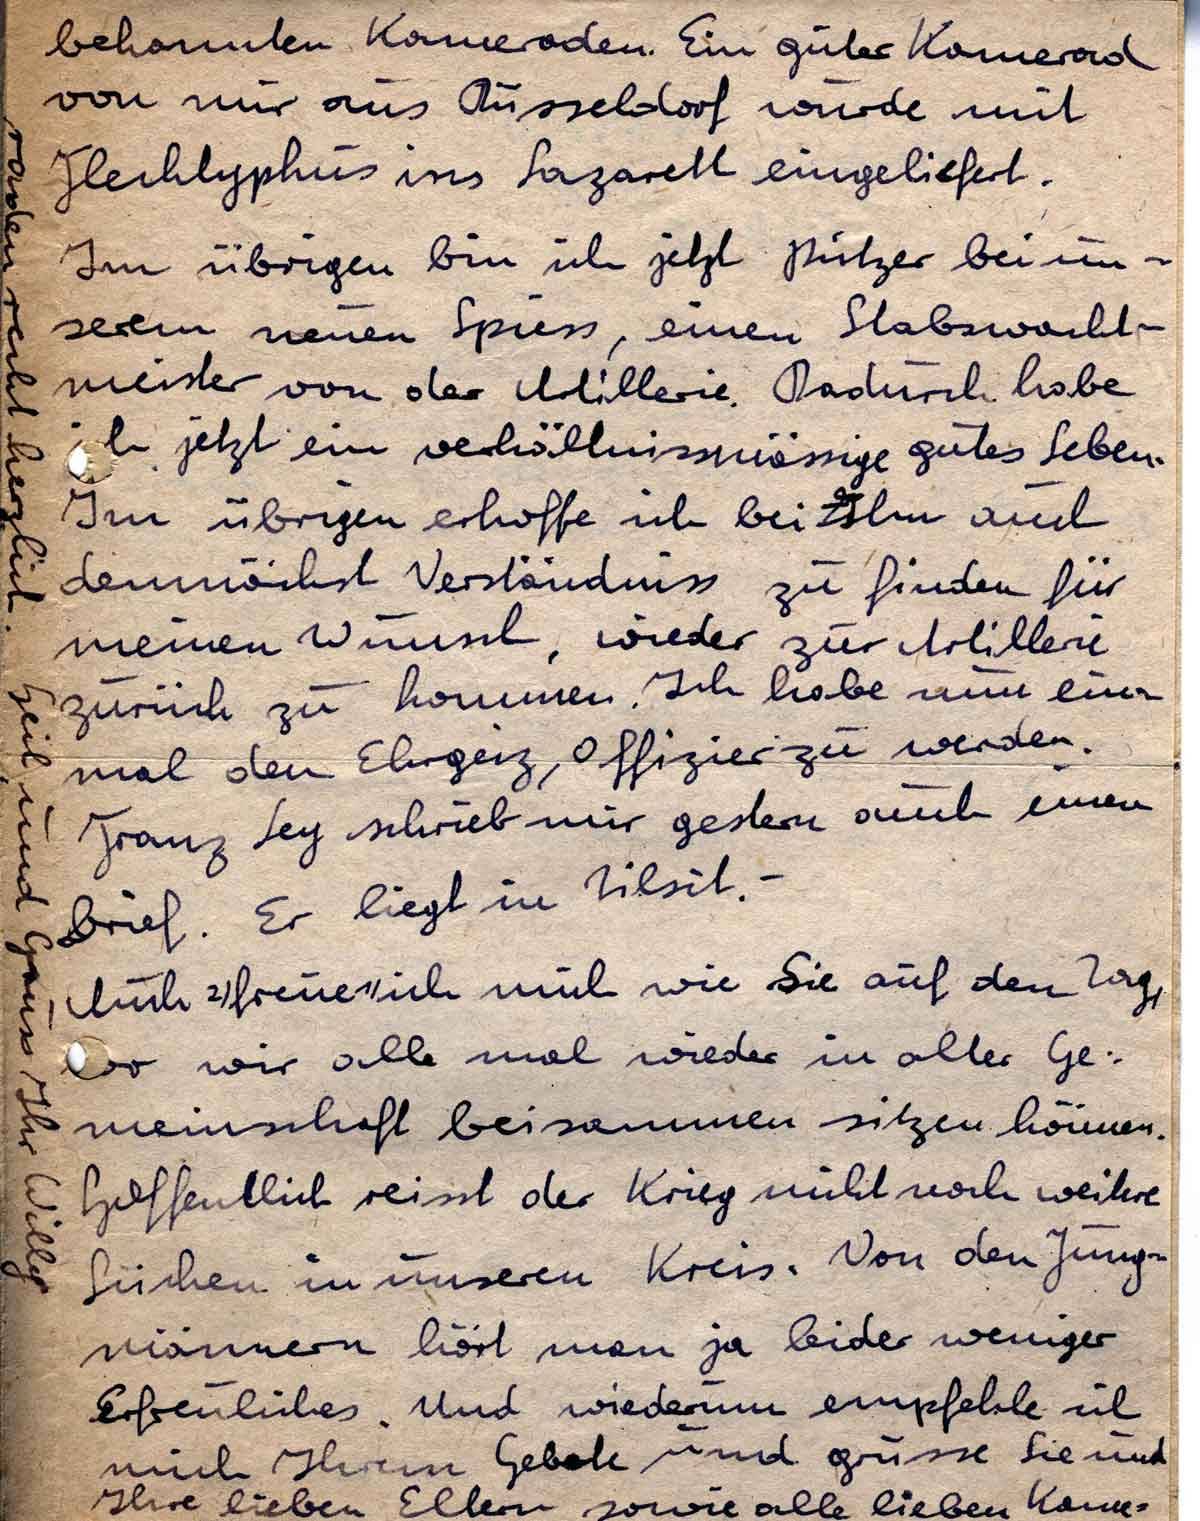 bekannten Kameraden. Ein guter Kamerad
von mir aus Düsseldorf wurde mit
Flecktyphus ins Lazarett eingeliefert.
Im übrigen bin ich jetzt Putzer bei un-
serem neuen Spiess, einen Stabswacht-
meister von der Artillerie. Dadurch habe
ich jetzt ein verhältnissmässige gutes Leben.
Im übrigen erhoffe ich bei Ihm auch
demnächst Verständniss zu finden für
meinen Wunsch, wieder zur Artillerie
zurück zu kommen. Ich habe nun ein-
mal den Ehrgeiz, Offizier zu werden.
Franz Ley schrieb mir gestern auch einen
Brief. Er liegt in Tilsit.-
Auch 2) freue 1) ich mich wie Sie auf den Tag,
wo wir alle mal wieder in alter Ge-
meinschaft beisammen sitzen können.
Hoffentlich reisst der Krieg nicht noch weitere
Lücken in unseren Kreis. Von den Jung-
männern hört man ja leider weniger
Erfreuliches. Und wiederum empfehle ich
mich Ihrem Gebete und grüsse Sie und
Ihre lieben Eltern sowie alle lieben Kame-
raden recht herzlich. Heil und Gruss Ihr Willy